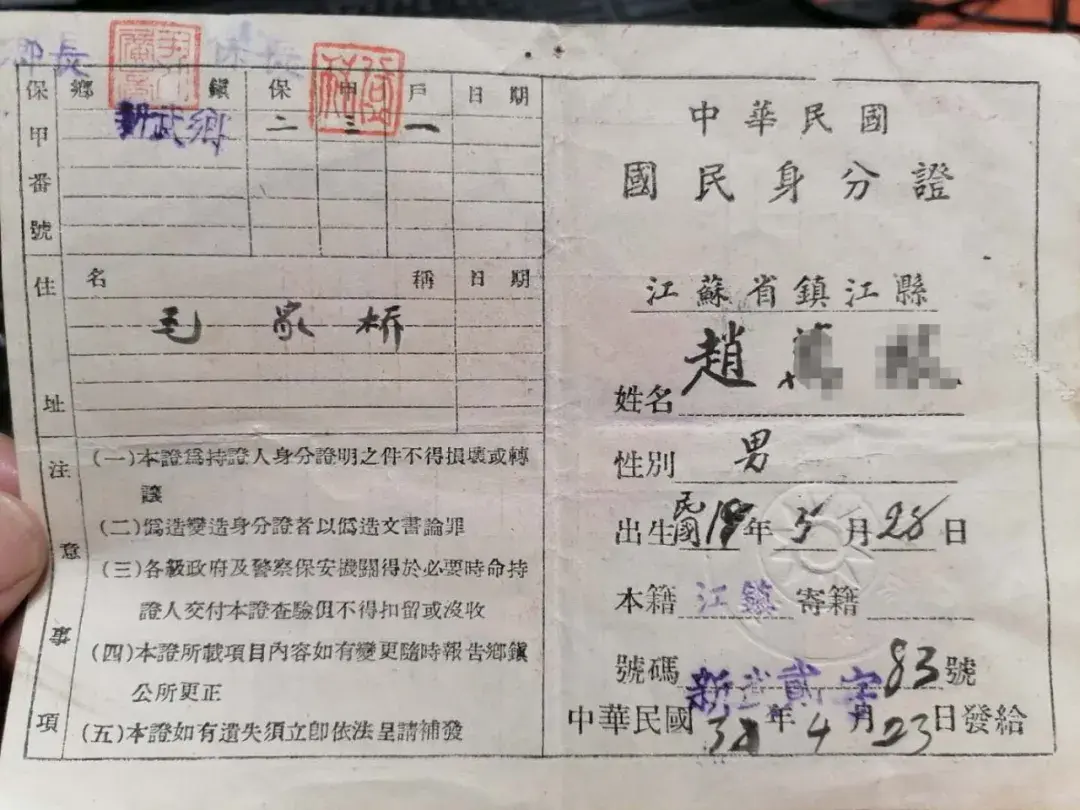 中華民國
國民身分證
江蘇省鎮江縣
姓名 趙
性別 男
出生 民國 18 年 3 月 28 日
本籍 江鎮 寄籍
號碼 新武貳字 83 號
中華民國 年 4 月 23 日發給
鄉長 保長
保甲番號 鄉 鎮 保 甲 戶 日期
新武鄉 二 三 一
住址 名稱 日期
毛家桥
注意事項
(一)本證爲持證人身分證明之件不得損壞或轉
讓
(二)僞造變造身分證者以僞造文書論罪
(三)各級政府及警察保安機關得於必要時命持
證人交付本證查驗但不得扣留或沒收
(四)本證所載項目內容如有變更隨時報告鄉鎮
公所更正
(五)本證如有遺失須立卽依法呈請補發